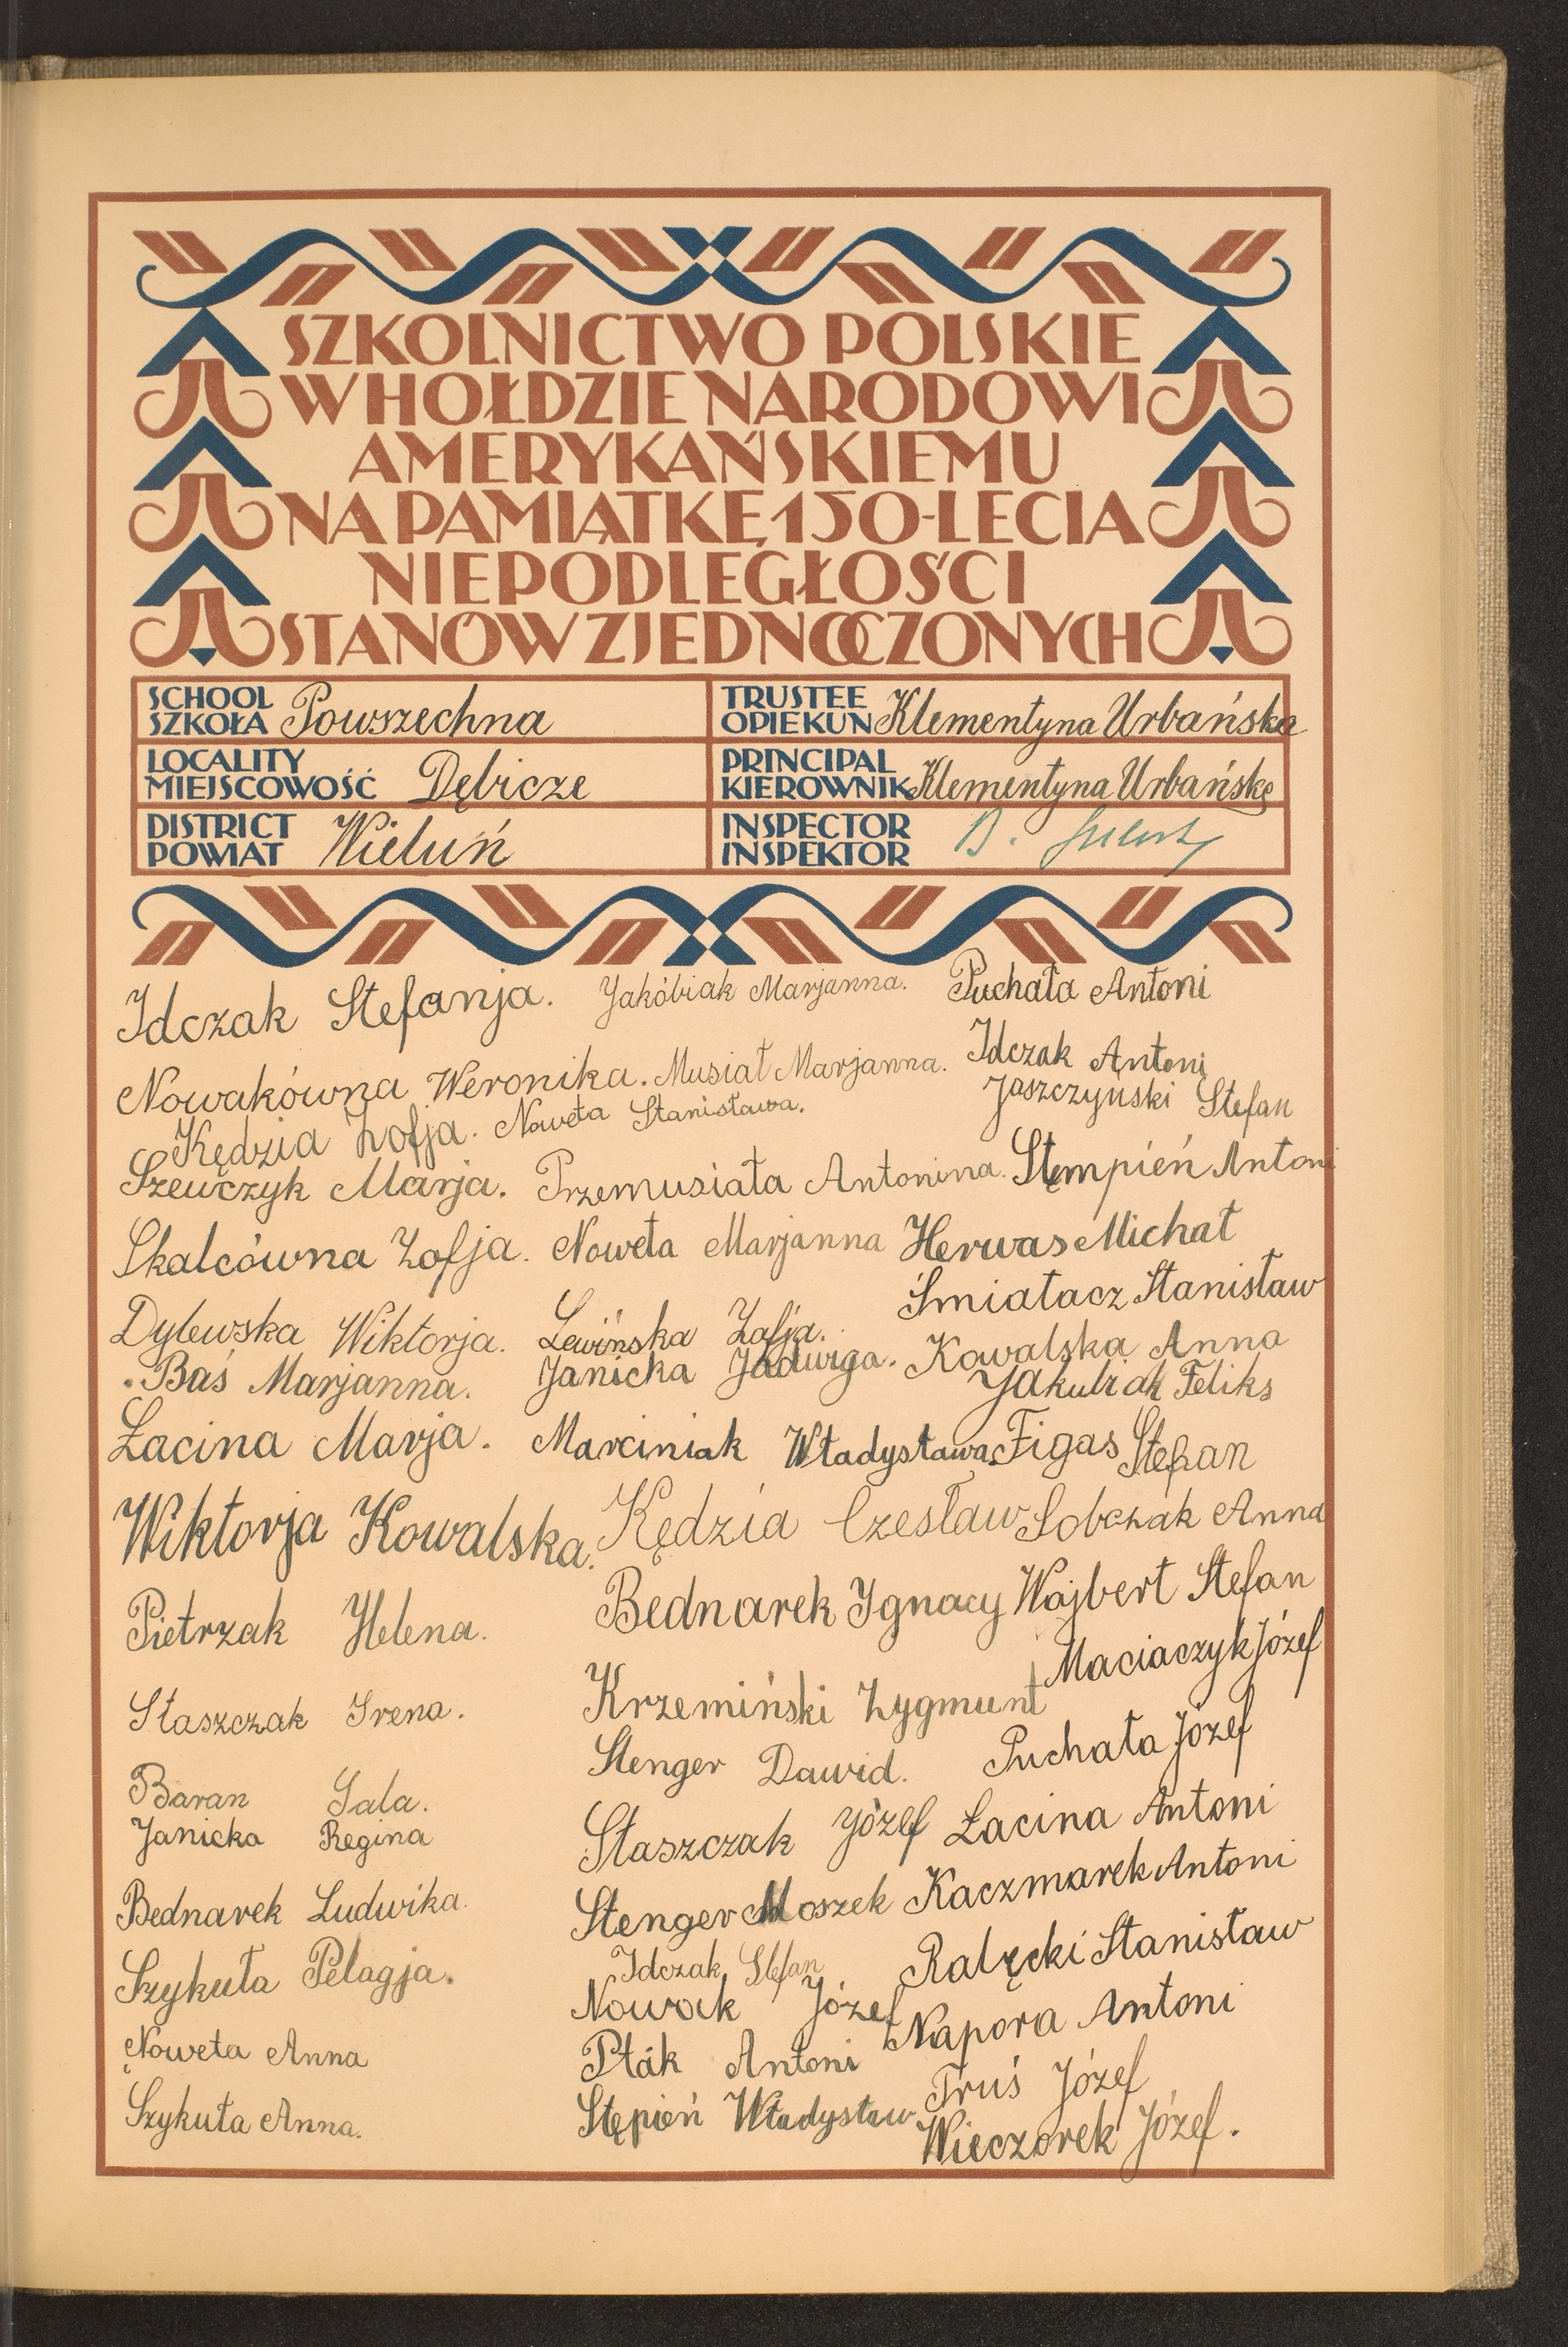 SZKOLNICTWO POLSKIE
W HOŁDZIE NARODOWI
AMERYKAŃSKIEMU
NA PAMIĄTKĘ 150-LECIA
NIEPODLEGŁOŚCI
STANÓW ZJEDNOCZONYCH
SCHOOL
SZKOŁA Powszechna
TRUSTEE
OPIEKUN Klementyna Urbańska
LOCALITY
MIEJSCOWOŚĆ Dębicze
PRINCIPAL
KIEROWNIK Klementyna Urbańska
DISTRICT
POWIAT Wieluń
INSPECTOR
INSPEKTOR B.
Idczak Stefanja. Jakóbiak Marjanna. Puchała Antoni
Nowakówna Weronika. Musiał Marjanna. Idczak Antoni
Jaszczyński Stefan
Kędzia Zofja. Noweta Stanisława.
Szewczyk Marja. Przemusiała Antonina. Stempień Antoni
Skalcówna Zofja. Noweta Marjanna Herwas Michał
Śmiałacz Stanisław
Dylewska Wiktorja. Lewińska Zofja. Kowalska Anna
Baś Marjanna. Janicka Jadwiga. Jakubiak Feliks
Łacina Marja. Marciniak Władysława. Figas Stefan
Wiktorja Kowalska. Kędzia Czesław Sobczak Anna
Pietrzak Helena. Bednarek Ignacy Wajbert Stefan
Maciaczyk Józef
Staszczak Irena. Krzemiński Zygmunt
Stenger Dawid. Puchała Józef
Baran Sala.
Janicka Regina Staszczak Józef Łacina Antoni
Bednarek Ludwika. Stenger Moszek Kaczmarek Antoni
Szykuła Pelagja. Idczak Stefan Ralęcki Stanisław
Nowak Józef Napora Antoni
Noweta Anna Ptak Antoni Truś Józef
Szykuła Anna. Stępień Władysław Wieczorek Józef.